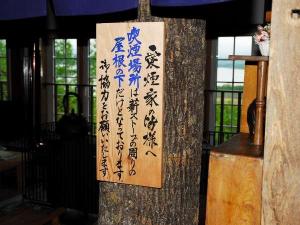 愛煙家皆様へ
喫煙場所は薪ストーブの周りの
屋根の下だけとなっております
御協力をお願いいたします